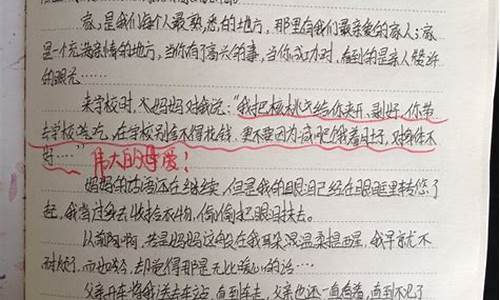 家,是我们每个人最熟悉的地方,那里有我们最亲爱的家人;家
是一个充满亲情的地方,当你有了高兴的事,当你成功时,看到的是亲人赞许
的眼光……
来学校时,妈妈对我说:“我把核桃给你夹开,剥好,你带
去学校吃,在学校别舍不得花钱,更不要因为减肥饿着肚子,对身体不
好…”伟大的母爱!
妈妈的话还在继续,但是我的眼泪已经在眼眶里转悠了
起,我借过去收拾衣物,偷偷把眼泪抹去。
以前啊,若是妈妈这般在我耳朵温柔提醒,我早就不
耐烦了,而如今,却觉得那是无比暖心的话……
父亲开车将我送去车站,直到车走,父亲也还一直看着,直到不见了